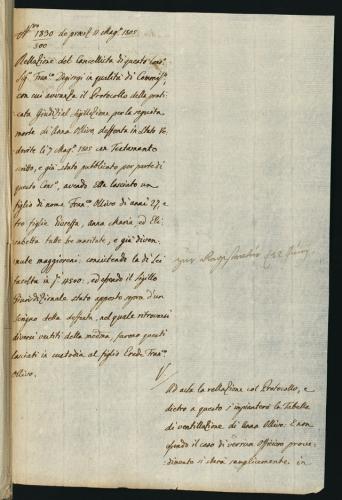 N.ro 1830 de pres.to 11 Mag.o 1805
300
Rellazione del Cancellista di questo Cons.o
Sig.r Fran.co Degiorgi in qualità di Commiss.o,
con cui avvanza il Protocollo della prati-
cata Giudizial Sigillazione per la seguita
morte di Anna Ollivo, deffonta in Stato Ve-
dovile li 7 Mag.o 1805 con Testamento
scritto, e già stato pubblicato per parte di
questo Cons.o, avendo Ella lasciato un
figlio di nome Fran.co Ollivo di anni 27, e
tre figlie Dioressa, Anna Maria, ed Eli-
sabetta tutte tre maritate, e già dive-
nute maggiorenni: consistendo la di lei
facoltà in f. 4500: ed essendo il Sigillo
Giurisdizionale stato apposto sopra d'un
Scrigno della deffonta, nel quale ritrovansi
diversi vestiti della medma, furono questi
lasciati in custodia al figlio Erede Fran.co
Ollivo.
Ad acta la rellazione col Protocollo, e
dietro a questo si impianterà la Tabella
di ventillazione di Anna Ollivo. E non
essendo il caso di verrun Officioso provve-
dimento si starà semplicemente in